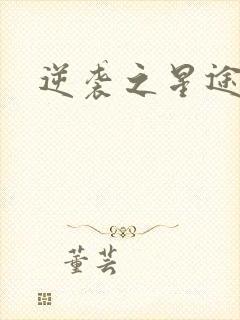 逆袭之星途
董芸